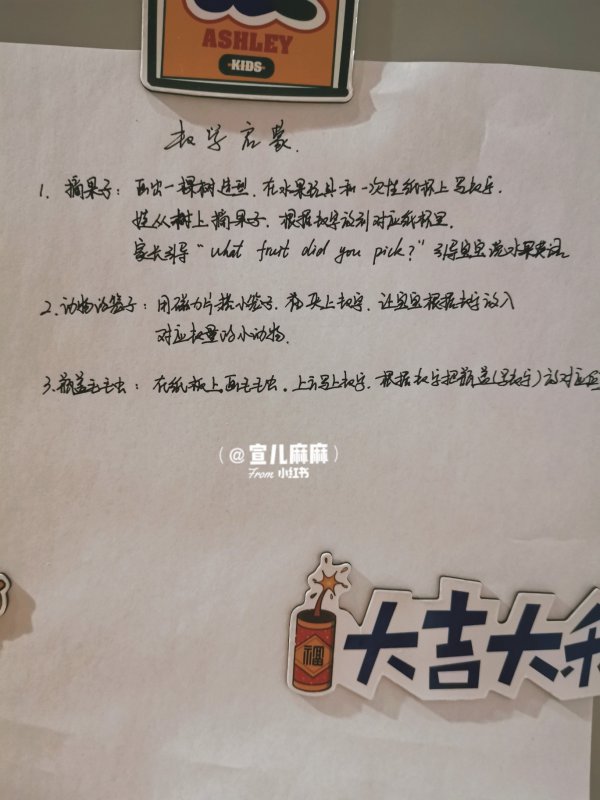 ASHLEY
KIDS
数学启蒙
1. 摘果子：画出一棵树造型，在水果玩具和一次性纸杯上写数字
娃从树上摘果子，根据数字放到对应纸杯里.
家长引导“what fruit did you pick?”引导宝宝说水果英语
2.动物油笼子：用磁力片搭小笼子，夹上数字，让宝宝根据数字放入
对应数量的小动物.
3.瓶盖毛毛虫：在纸板上画毛毛虫，上写数字，根据数字把瓶盖(写数字)放对应
(@宣儿麻麻)
From 小红书
福
大吉大利